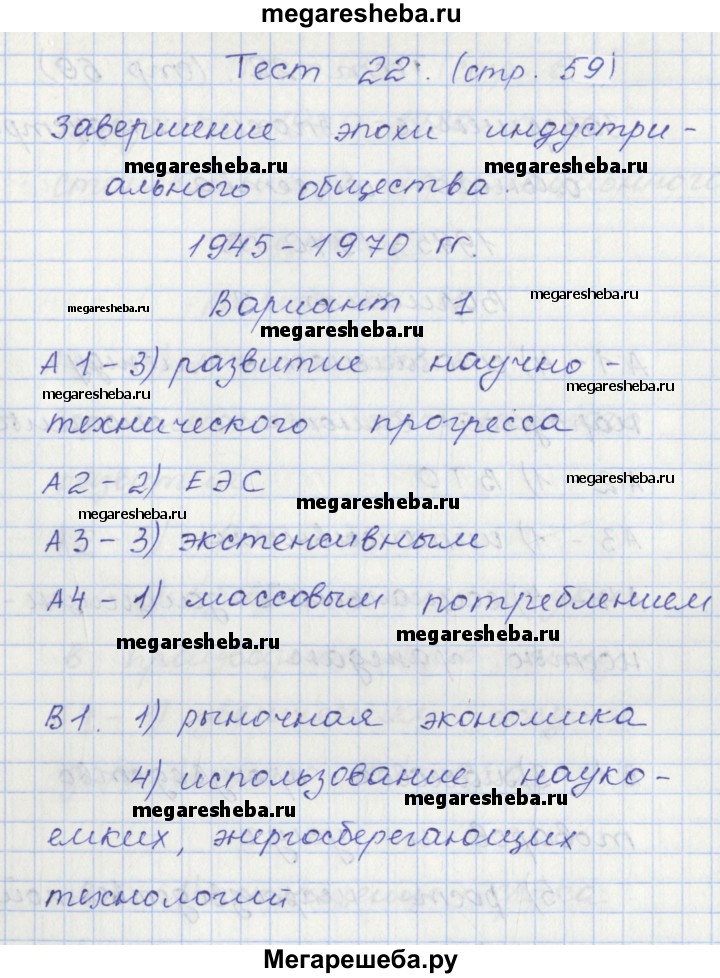 megaresheba.ru
Тест 22. (стр. 59)
Завершение эпохи индустри-
megaresheba.ru megaresheba.ru
ального общества.
1945-1970 гг.
megaresheba.ru Вариант 1 megaresheba.ru
megaresheba.ru
А1-3) развитие научно-
megaresheba.ru megaresheba.ru
технического прогресса
А2-2) ЕЭС megaresheba.ru
megaresheba.ru megaresheba.ru
А3-3) экстенсивным
А4-1) массовым потреблением
megaresheba.ru megaresheba.ru
В1. 1) рыночная экономика
4) использование науко-
megaresheba.ru megaresheba.ru
емких, энергосберегающих
технологий
Мегарешеба.ру